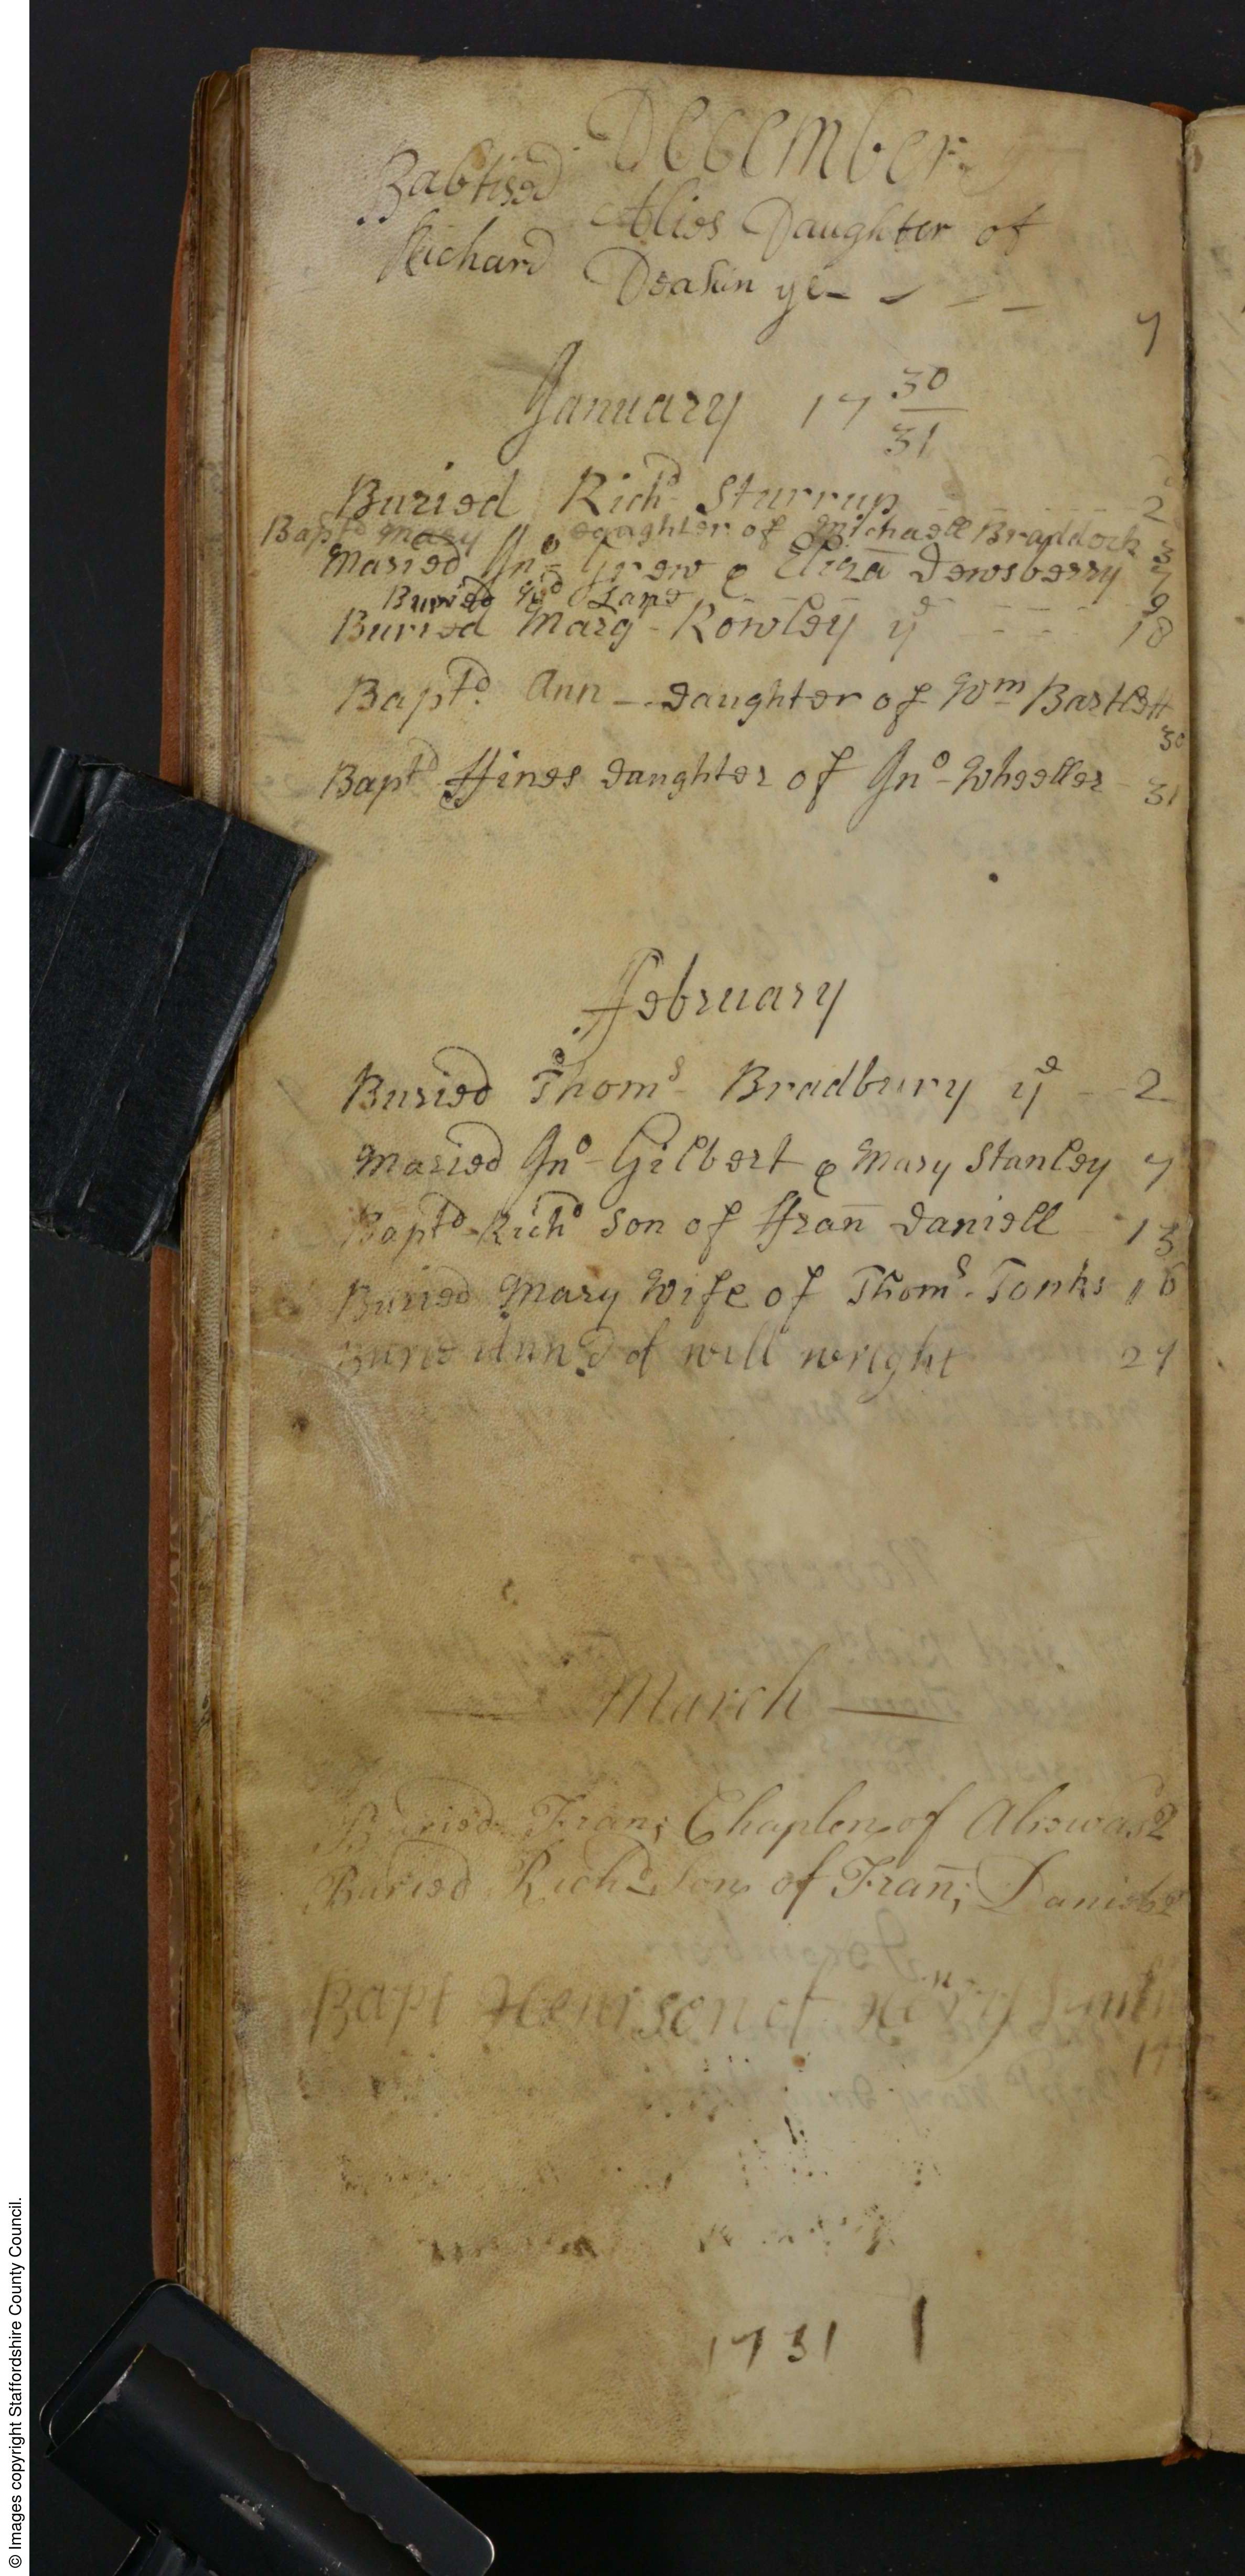 December
Babtised Alies Daughter of
Richard Deakin ye
7
January 17 30/31
Buried Richd Sturrup 2
Baptd Mary daughter of Michaell Braddock 3
Maried Jno Grew & Eliza Dewsberry 7
Buried Lane 9
Buried Marg Rowley ye 18
Baptd Ann daughter of Wm Bartlett
30
Baptd ffines daughter of Jno Wheeller 31
ffebruary
Buried Thoms Bradbury ye 2
Maried Jno Gilbert & Mary Stanley 7
Baptd Richd Son of ffran Daniell 13
Buried Mary Wife of Thoms Tonks 16
Buried Ann D of will wright 27
March
Buried Fran; Chaplen of Alrewas 2
Buried Richd Son of Fran; Daniel
Bapt Henri son of Henry Smith
17
1731
© Images copyright Staffordshire County Council.